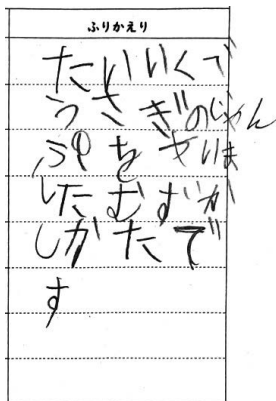 ふりかえり
たいいくで
うさぎのじゃん
ぷをやいま
したむずか
しかたで
す